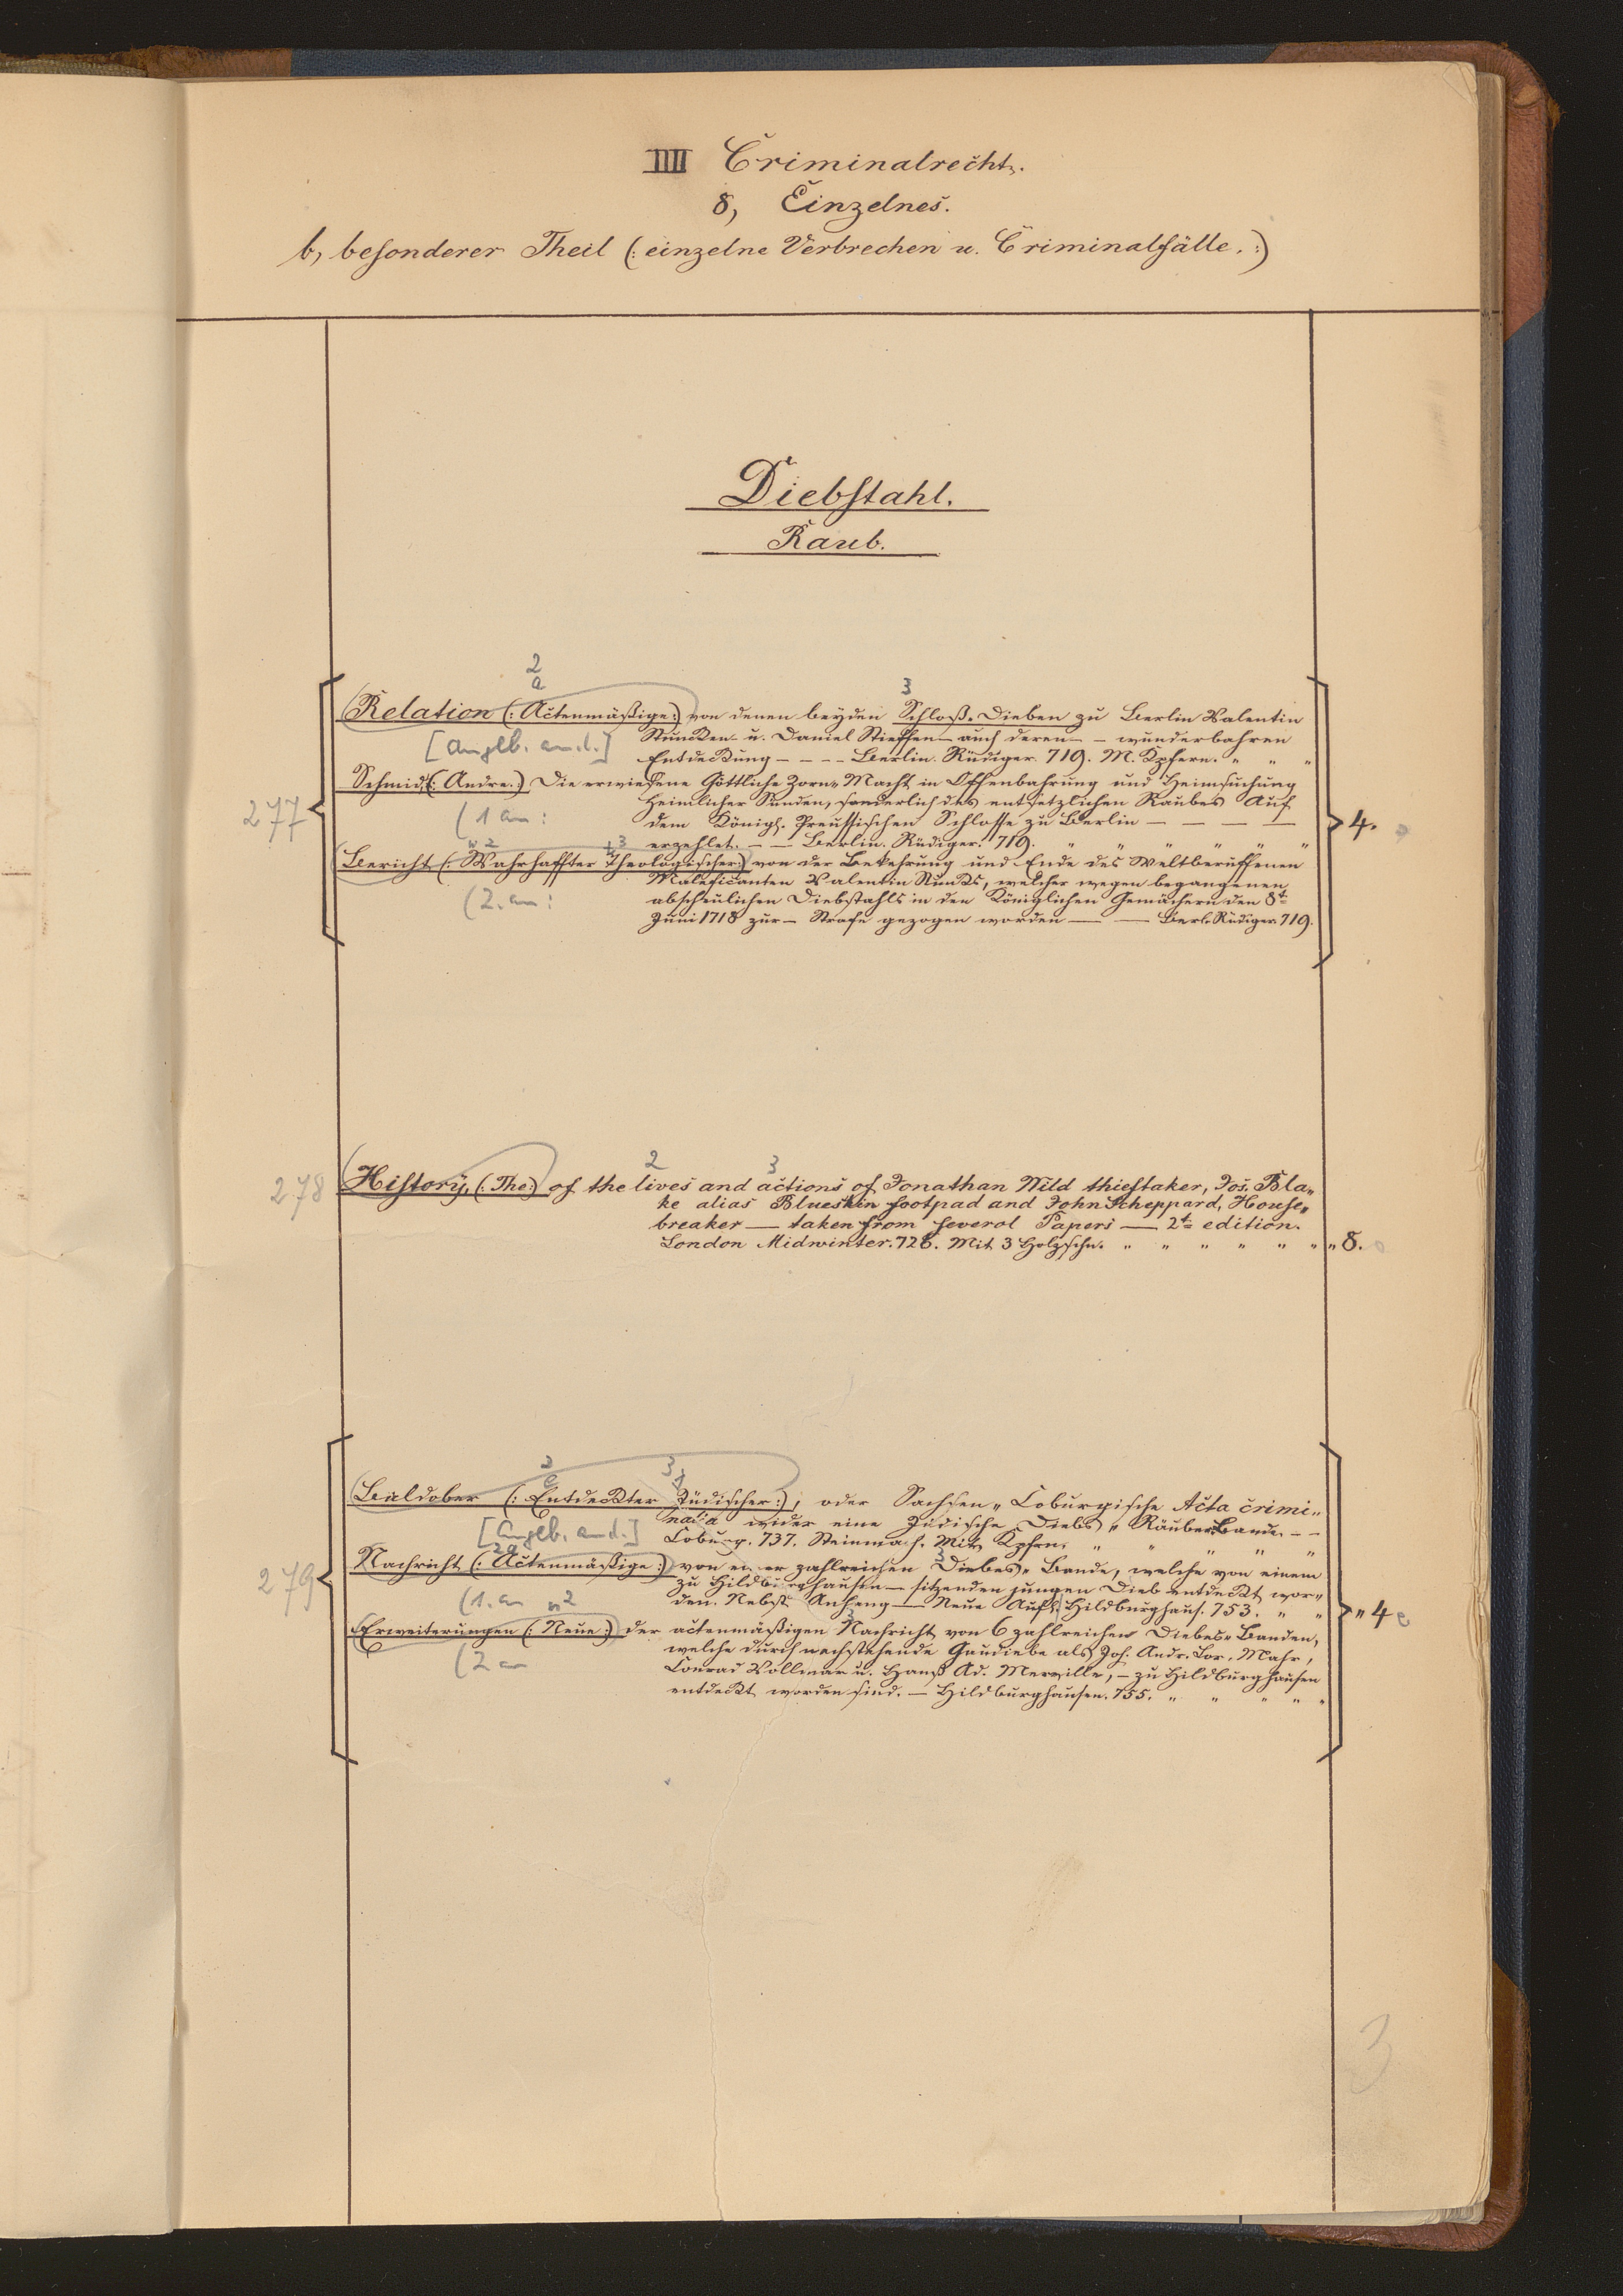 IIII Criminalrecht.
8, Einzelnes.
b, besonderer Theil (: einzelne Verbrechen u. Criminalfälle. :)
Diebstahl.
Raub.
2
a
3
Relation (: Actenmäßige :) von denen beyden Schloß-Dieben zu Berlin Valentin
[Angeb. an d.] Runcken- u. Daniel Stieffen- auch deren- - wunderbahren
Entdeckung - - - - Berlin. Rüdiger. 719. M. Kpfern. " " "
277
Schmid (: Andre. :) Die erwiesene Göttliche Zorn-Macht in Offenbahrung und Heimsuchung
Heimlicher Sünden, sonderlich des entsetzlichen Raubes Auf
(1 an: dem Königl. Preussischen Schlosse zu Berlin — — — — 4.
erzehlet. — — Berlin. Rüdiger. 719. " " " " "
n 2 t 3
Bericht (: Wahrhaffter Theologischer :) von der Bekehrung und Ende des Weltberuffenen
Maleficanten Valentin Runcks, welcher wegen begangenen
(2. an: abscheulichen Diebstahls in den Königlichen Gemächern den 8t
Juni 1718 zur - Strafe gezogen worden — — Berl. Rüdiger 719.
2 3
278 History, (: The :) of the lives and actions of Jonathan Wild thieftaker, Jos. Bla"
ke alias Blueskin footpad and John Scheppard, House"
breaker — taken from several Papers — 2t edition.
London Midwinter. 726. Mit 3 Holzschn. " " " " " " " 8.
2 3
e j
Baldober (: Entdeckter Jüdischer :), oder Sachsen " Coburgische Acta crimi"
nalia wider eine Jüdische Diebs " Räuber Bande. - -
[Angeb. an d.] Coburg. 737. Steinmach. Mit Kpfrn. " " " " "
2a 3
Nachricht (: Actenmäßige :) von einer zahlreichen Diebes" Bande, welche von einem
279 zu Hildburghausen — sitzenden jungen Dieb entdeckt wor"
(1. an den. Nebst Anhang — Neue Aufl. Hildburghaus. 753. " " " 4
n 2 3
Erweiterungen (: Neue :) der actenmäßigen Nachricht von 6 zahlreichen Diebes" Banden,
welche durch nachstehende Gaudiebe als Joh. Andr. Lor. Mahr,
(2 an Conrad Vollmar u. Hanß Ad. Merville, - zu Hildburghausen
entdeckt worden sind. — Hildburghausen. 755. " " " " "
3